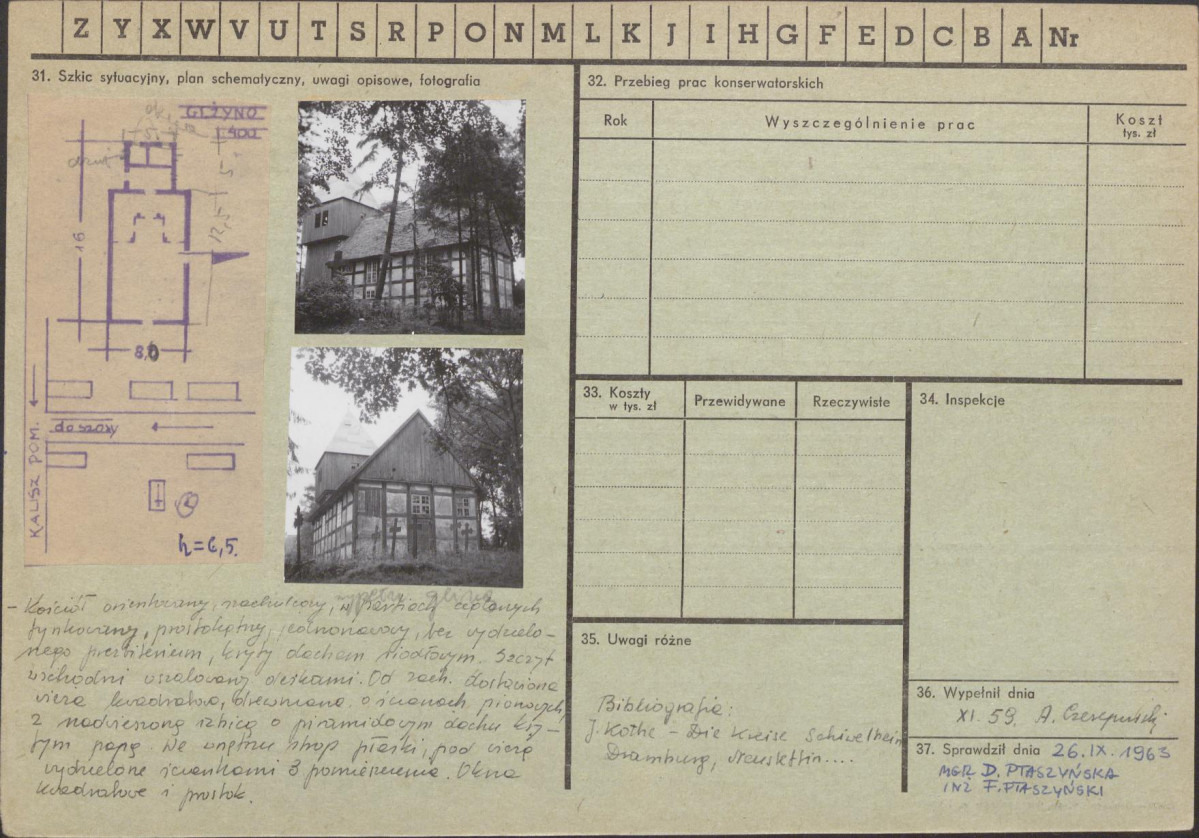 Z Y X W V U T S R P O N M L K J I H G F E D C B A Nr
31. Szkic sytuacyjny, plan schematyczny, uwagi opisowe, fotografia
GIŻYNO
1:400
16
5
12,5
8,0
do szosy
KALISZ POM.
h=6,5.
wypełn. glina
– Kościół orientowany, szachulcowy, w partiach ceglanych
tynkowany, prostokątny, jednonawowy, bez wydzielo-
nego prezbiterium, kryty dachem siodłowym. Szczyt
wschodni oszalowany deskami. Od zach. dostawiona
wieża kwadratowa, drewniana o ścianach pionowych,
z nadwieszoną izbicą o piramidowym dachu kry-
tym papą. We wnętrzu strop płaski, pod wieżą
wydzielone ściankami 3 pomieszczenia. Okna
kwadratowe i prostok.
32. Przebieg prac konserwatorskich
Rok
Wyszczególnienie prac
Koszt
tys. zł
33. Koszty
w tys. zł
Przewidywane
Rzeczywiste
34. Inspekcje
35. Uwagi różne
Bibliografia:
J. Kothe – Die Kreise Schivelbein
Dramburg, Neustettin....
36. Wypełnił dnia
XI. 59. A.
37. Sprawdził dnia 26.IX.1963
MGR D. PTASZYŃSKA
INŻ F. PTASZYŃSKI